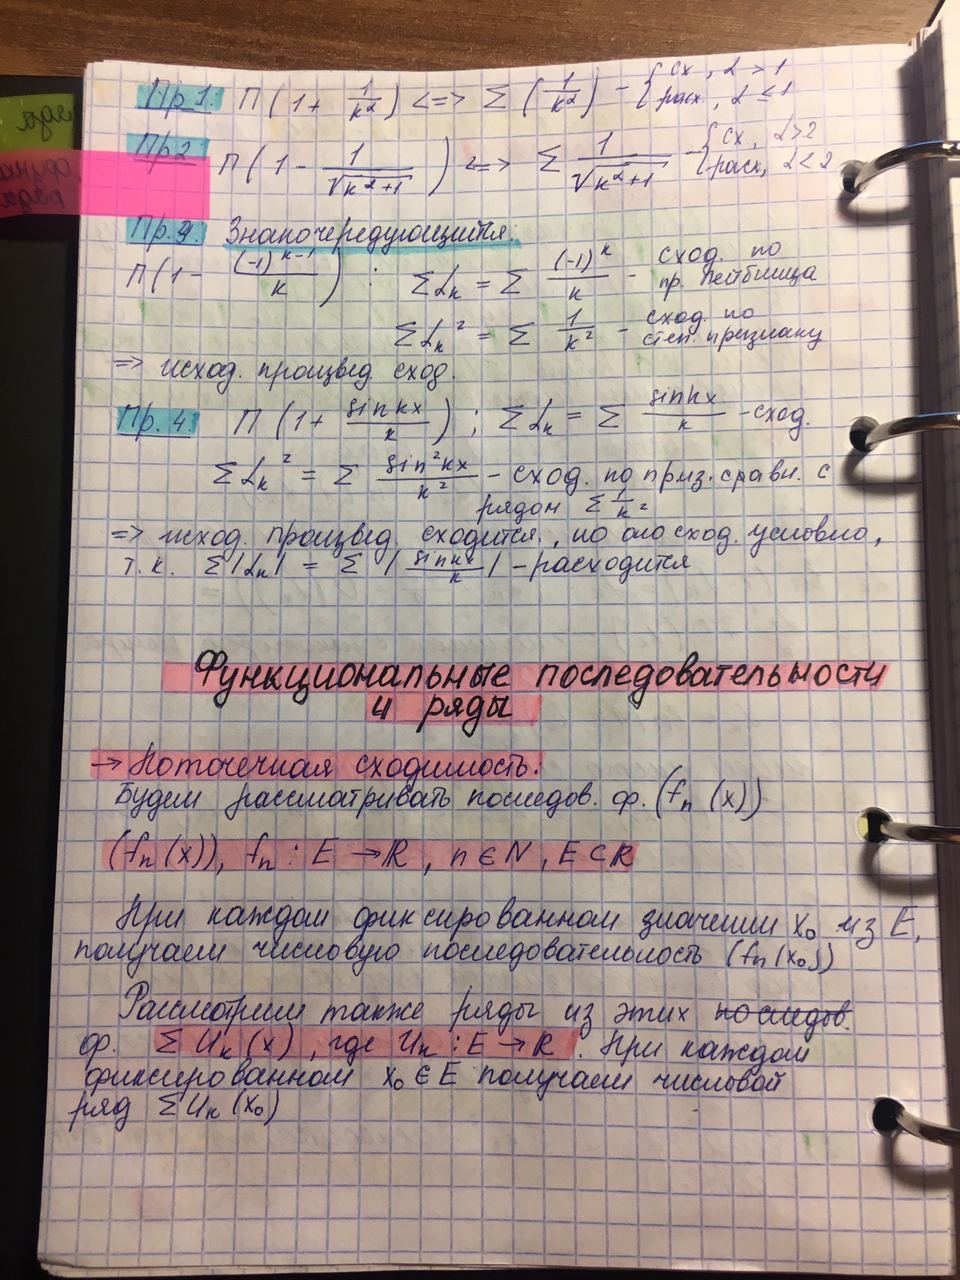 Пр.1. П(1 + 1/k²) <=> Σ(1/k²) - { сх, α > 1
расх., α ≤ 1
Пр2. П(1 - 1/√k²+1) <=> Σ 1/√k²+1 - { сх, α>2
расх, α<2
Пр.3. Знакочередующийся:
П(1 - (-1)^(k-1)/k) : Σαₖ = Σ (-1)^k/k - сход. по
пр. Лейбница
Σαₖ² = Σ 1/k² - сход. по
степ. признаку
=> исход. произвед сход.
Пр. 4. П(1 + sin kx/k) ; Σαₖ = Σ sin kx/k - сход.
Σαₖ² = Σ sin²kx/k² - сход. по приз. сравн. с
рядом Σ 1/k²
=> исход. произвед. сходится, но оно сход. условно,
т.к. Σ|αₖ| = Σ |sin kx/k| - расходится
Функциональные последовательности
и ряды
→ Поточечная сходимость:
Будем рассматривать последов. ф. (fₙ(x))
(fₙ(x)), fₙ : E → R, n ∈ N, E ⊂ R
При каждом фиксированном значении x₀ из E,
получаем числовую последовательность (fₙ(x₀))
Рассмотрим также ряды из этих последов.
ф. Σ Uₖ(x), где Uₖ : E → R. При каждом
фиксированном x₀ ∈ E получаем числовой
ряд Σ Uₖ(x₀)